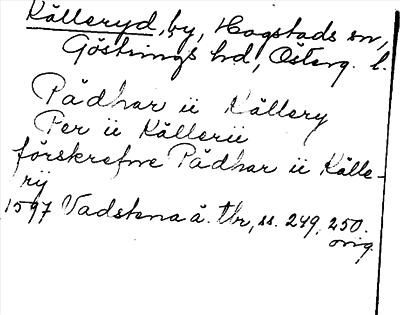 Källeryd, by, Hogstads sn,
Göstrings hd, Österg. l.
Pädhar ü Källery
Per ü Källerü
förskrefne Pädhar ü Källe-
rÿ
1597 Vadstena å. tbr, ss. 249, 250.
orig.